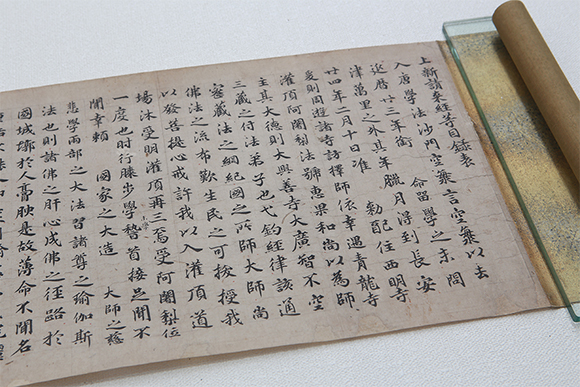 上新請来経等目録表
入唐學法沙門空海言空海以去
延曆廿三年銜 命留學之末問
津万里之外其年臘月得到長安
廿四年二月十日准 勅配住西明寺
爰則周遊諸寺訪擇師依幸遇青龍寺
灌頂阿闍梨法号恵果和尚以為師
主其大德則大興善寺大廣智不空
三藏之付法弟子也弋釣経律該通
密藏法之綱紀國之所師大師尚
佛法之流布歎生民之可拔授我
以發菩提心戒許我以入灌頂道
場沐受明灌頂再三焉受阿闍梨位
一度也肘行膝步學未學稽首接足聞不
聞幸賴 國家之大造 大師之慈
悲學兩部之大法習諸尊之瑜伽斯
法也則諸佛之肝心成佛之徑路於
國城墎於人膏腴是故薄命不聞名